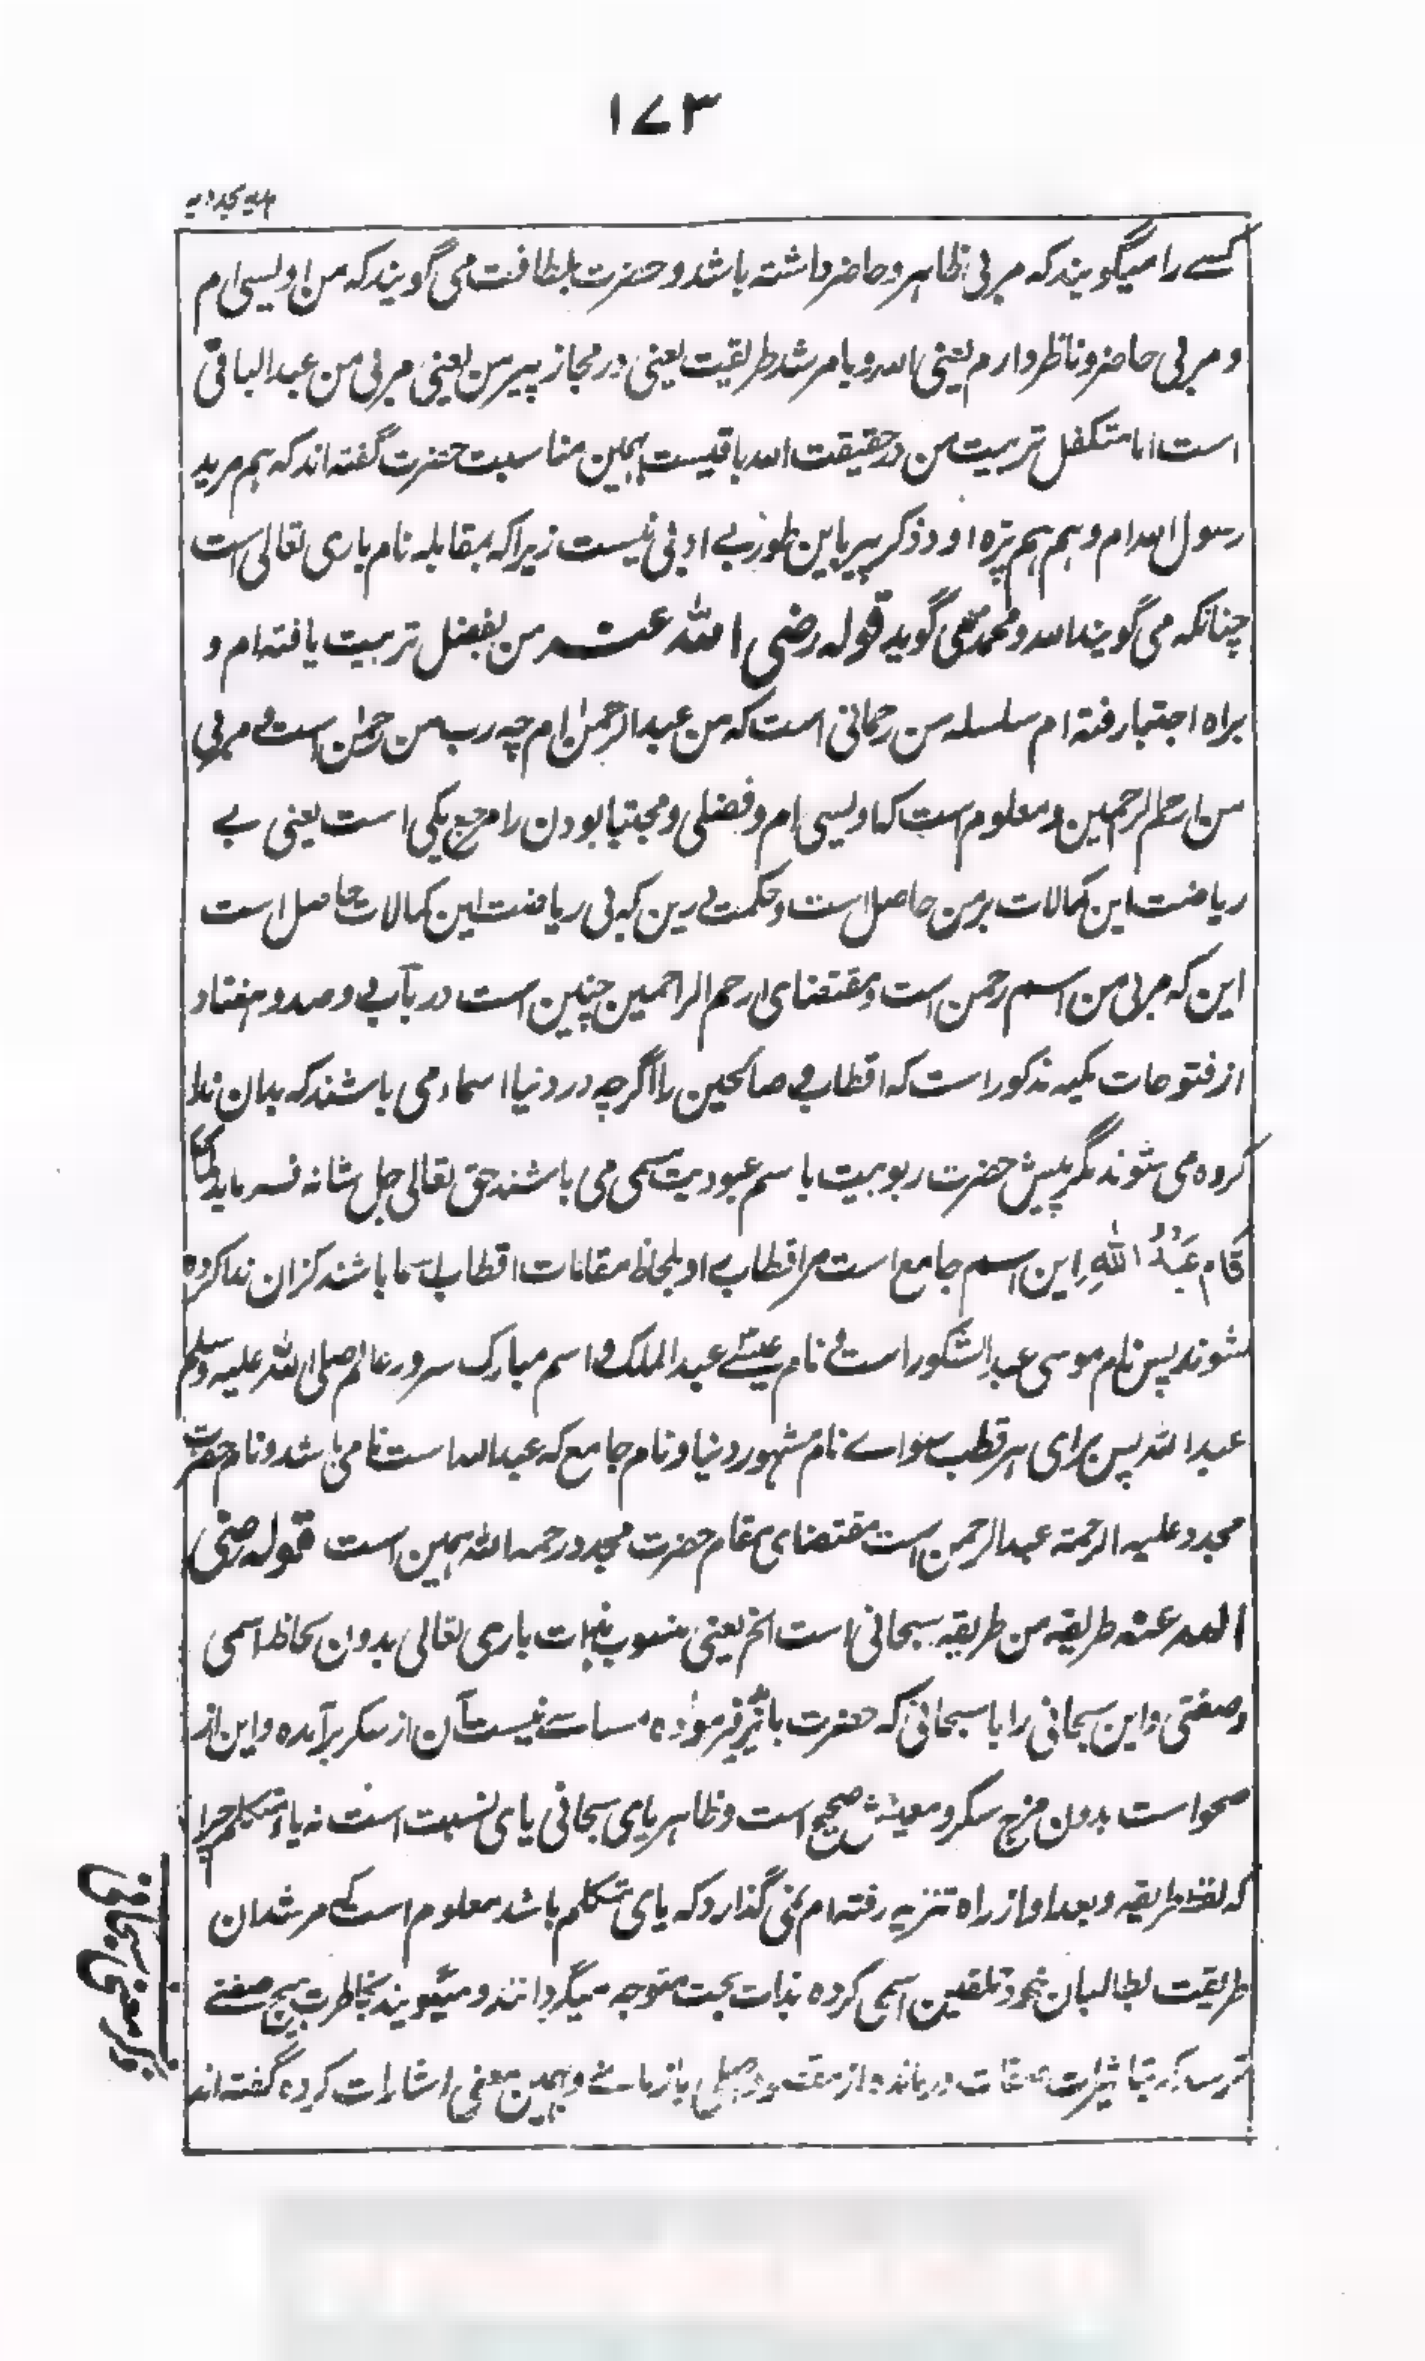 ۱۷۳
کسے را میگویند که مربی ظاهر و حاضر داشته باشد و حضرت بلطافت می گویند که من اویسی ام
و مربی حاضر و ناظر دارم یعنی الله و با مرشد طریقیت یعنی در مجاز پیر من یعنی مربی من عبدالباقی
است اما متکفل تربیت من در حقیقت الله باقیست بهمین مناسبت حضرت گفته اند که هم مرید
رسول الله ام و هم هم پره او و ذکر پیر باین طور بے ادبی نیست زیرا که بمقابله نام باری تعالی است
چنانکه می گویند الله و محمد می گوید قوله رضی الله عنه من بفضل تربیت یافته ام و
براه اجتبا رفته ام سلسله من رحمانی است که من عبدالرحمن ام چه رب من رحمن است و مربی
من ارحم الرحمین و معلوم است که اویسی ام و فضلی و مجتبا بودن را مرجع یکی است یعنی بے
ریاضت این کمالات بر من حاصل است و حکمت درین که بی ریاضت این کمالات حاصل است
این که مربی من اسم رحمن است و مقتضای ارحم الراحمین چنین است در باب و صد و هفتاد
از فتوحات مکیه مذکور است که اقطاب و صالحین را اگرچه در دنیا اسماء می باشند که بدان ندا
کرده می شوند مگر پیش حضرت ربوبیت باسم عبودیت مسمی می باشند حق تعالی جل شانه فرماید لما
قام عَبْدُ اللهِ این اسم جامع است مر اقطاب او بلحاظ مقامات اقطاب اسما باشند کزان ندا کرده
شوند پس نام موسی عبدالشکور است و نام عیسے عبدالملک و اسم مبارک سرور عالم صلی الله علیه وسلم
عبدالله پس برای هر قطب سواے نام مشهور دنیا و نام جامع که عبدالله است نامی باشد و نام حضرت
مجدد علیه الرحمة عبدالرحمن است مقتضای مقام حضرت مجدد رحمه الله همین است قوله رضی
الله عنه طریقه من طریقه سبحانی است الخ یعنی منسوب بذات باری تعالی بدون لحاظ اسمی
و صفتی و این سبحانی را با سبحانی که حضرت بایزید فرموده مساسے نیست آن از سکر برآمده و این از
صحو است بدون مزج سکر و معینش صحیح است و ظاهر یای سبحانی یای نسبت است نه یاء متکلم چرا
که لفظ طریقه و بعد او از راه تنزیه رفته ام نمی گذارد که یای متکلم باشد معلوم است که مرشدان
طریقت بطالبان خود تلقین اسمی کرده بذات بحت متوجه میگردانند و میگویند بخاطرت هیچ صفتے
در مانده از مقصود اصلی باز مانے و بهمین معنی اشارات کرده گفته اند